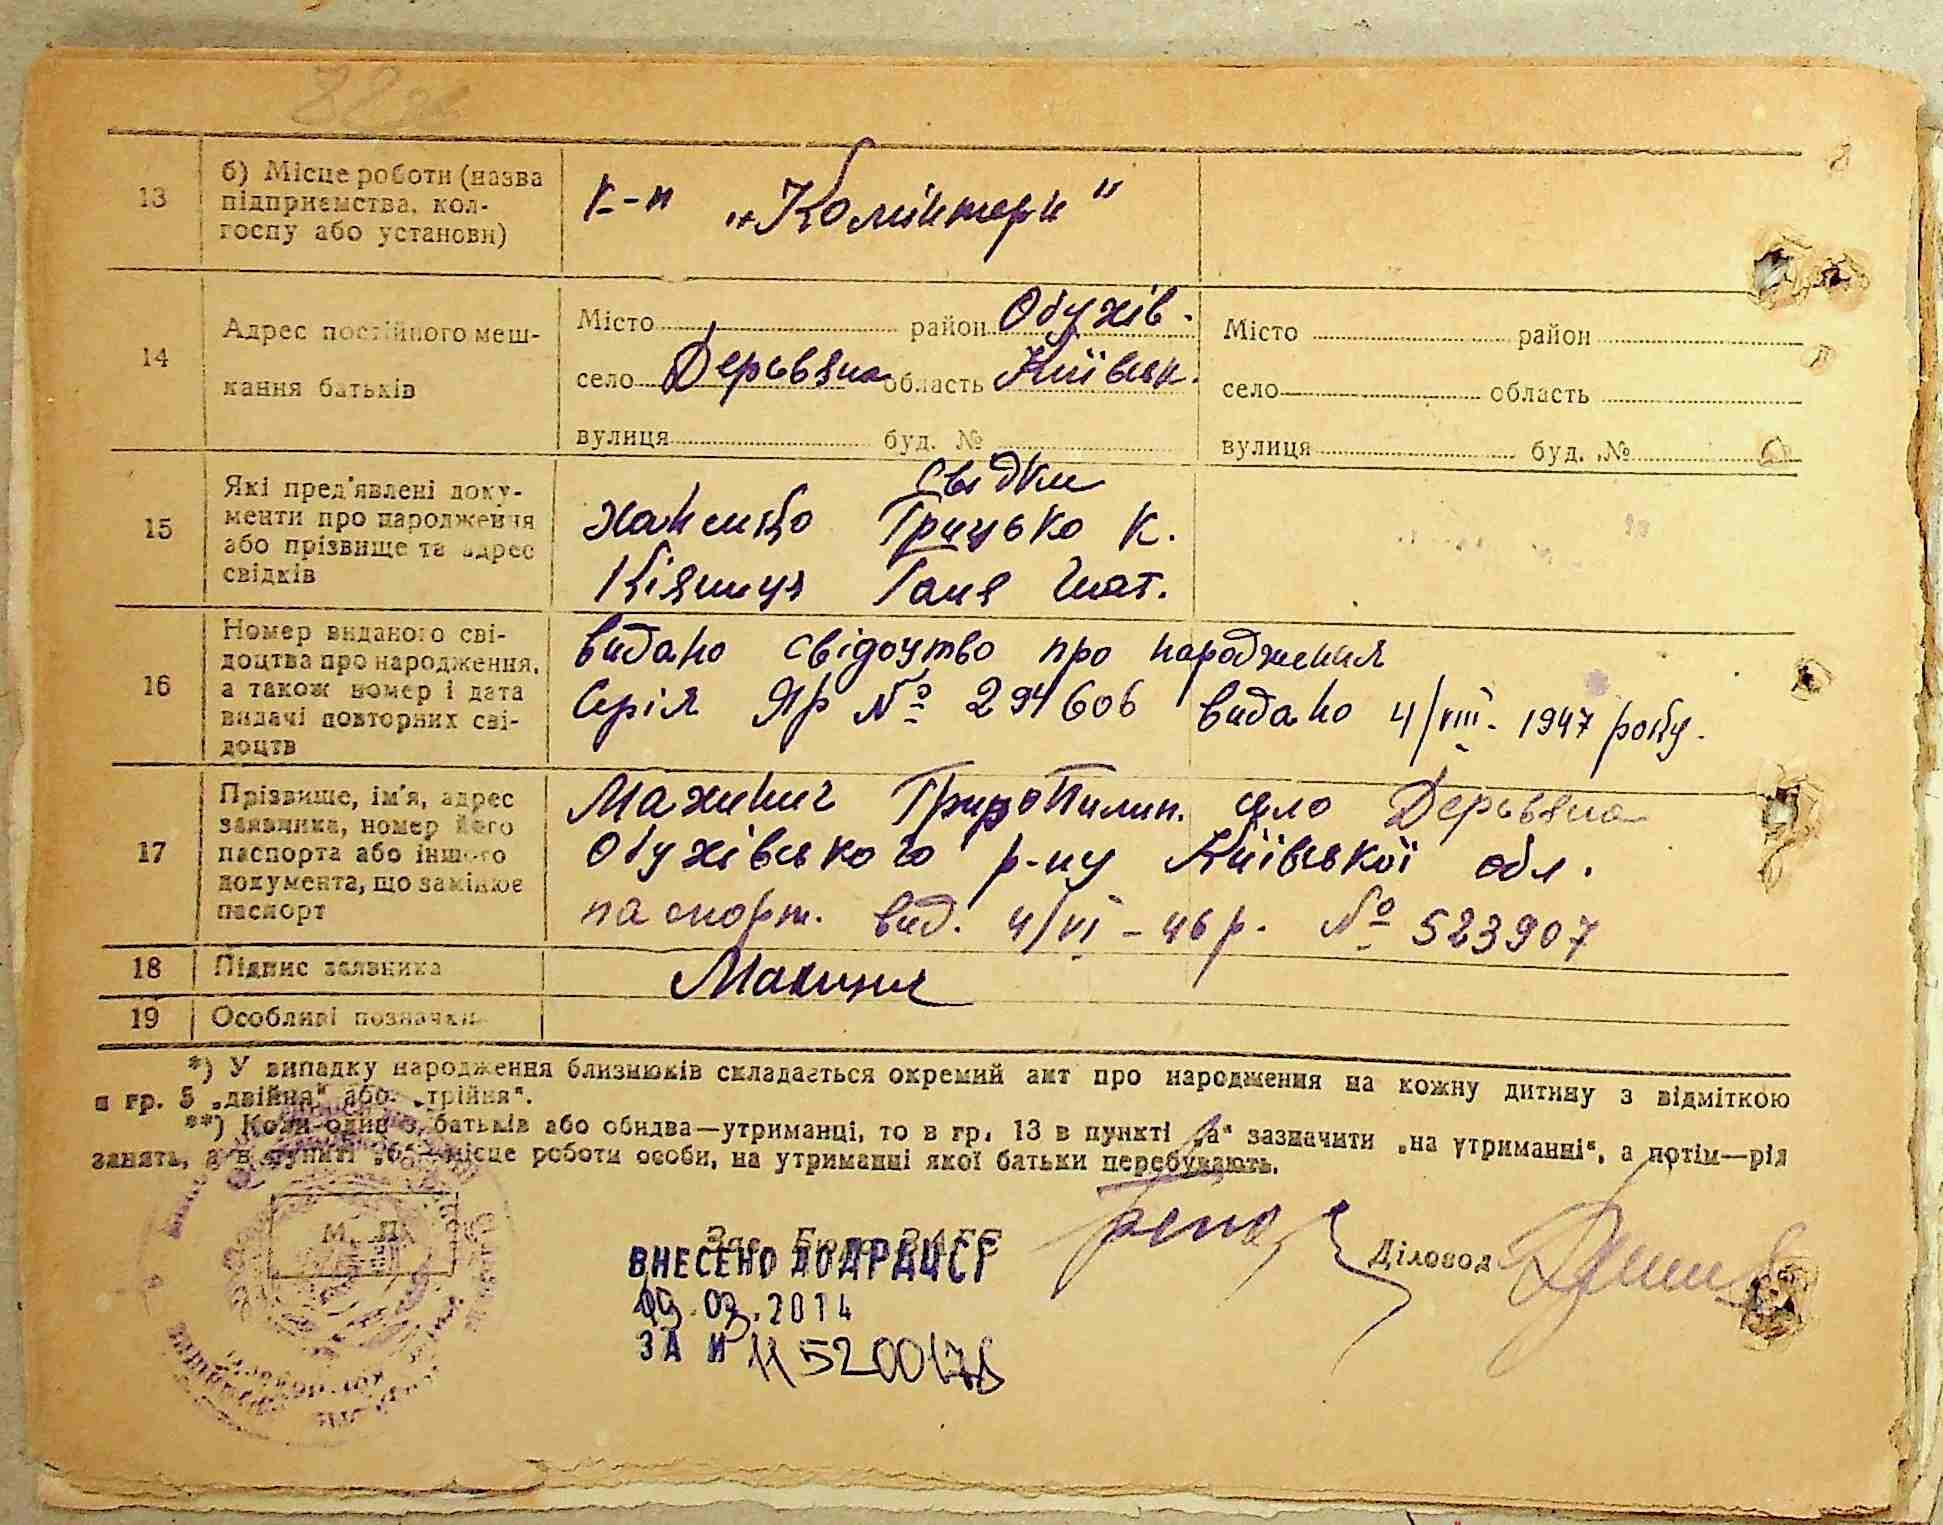 13
б) Місце роботи (назва
підприємства, кол-
госпу або установи)
к-п „Комінтерн"
14
Адрес постійного меш-
кання батьків
Місто район Обухів.
село Деревьяна область Київськ.
вулиця буд. №
Місто район
село область
вулиця буд. №
15
Які пред'явлені доку-
менти про народження
або прізвище та адрес
свідків
свідки
Грицько К.
Ганя Гнат.
16
Номер виданого сві-
доцтва про народження,
а також номер і дата
видачі повторних сві-
доцтв
видано свідоцтво про народження
Серія ЯР № 294606 видано 4/VIII. 1947 року.
17
Прізвище, ім'я, адрес
заявника, номер його
паспорта або іншого
документа, що замінює
паспорт
Махинич село Деревьяна
Обухівського р-ну Київської обл.
паспорт. вид. 4/VI-46 р. № 523907
18
Підпис заявника
19
Особливі позначки
*) У випадку народження близнюків складається окремий акт про народження на кожну дитину з відміткою
в гр. 5 „двійня" або „трійня".
**) Коли один з батьків або обидва—утриманці, то в гр. 13 в пункті „а" зазначити „на утриманні", а потім—рід
занять, а в пункті „б"—місце роботи особи, на утриманні якої батьки перебувають.
М. П.
Зав. Бюро ЗАГС
ВНЕСЕНО ДО ДРАЦСГ
03.2014
ЗА №
Діловод